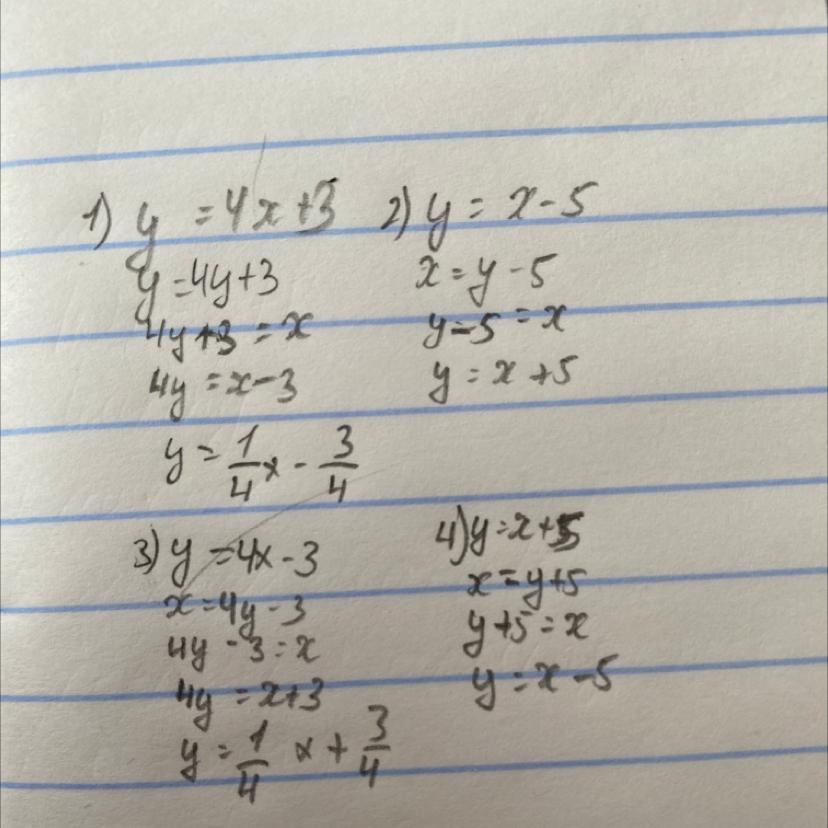 1) y = 4x+3
y = 4y+3
4y+3 = x
4y = x-3
y = 1/4 x - 3/4
2) y = x-5
x = y-5
y-5 = x
y = x+5
3) y = 4x-3
x = 4y-3
4y-3 = x
4y = x+3
y = 1/4 x + 3/4
4) y = x+5
x = y+5
y+5 = x
y = x-5